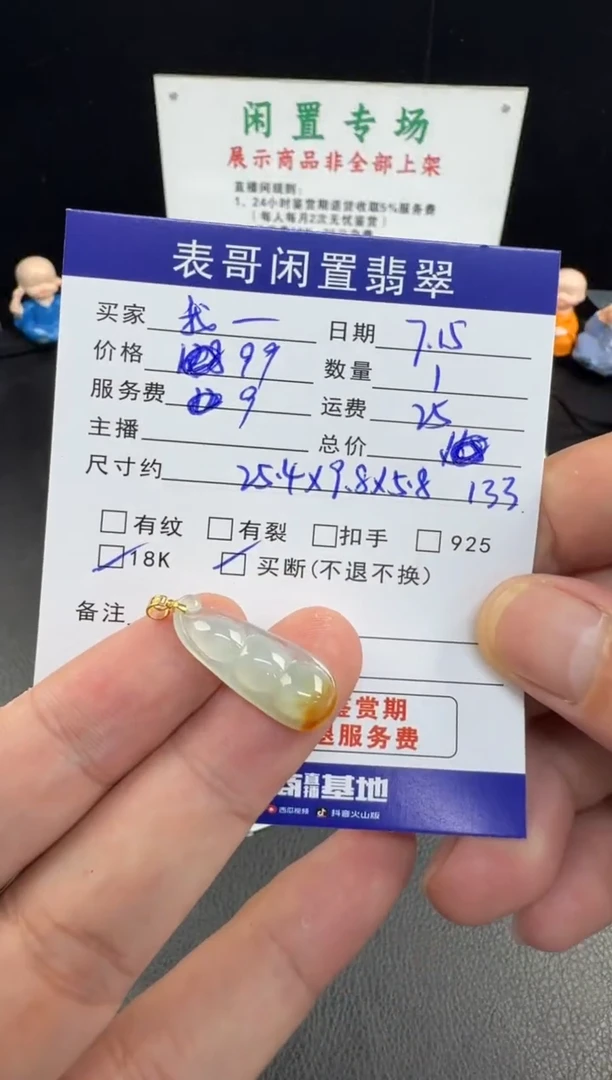 闲置专场
展示商品非全部上架
直播间规则:
1、24小时鉴赏期退货收取5%服务费
(每人每月2次无忧鉴赏)
表哥闲置翡翠
买家 我一 日期 7.15
价格 99 数量 1
服务费 9 运费 25
主播 总价
尺寸约 25.4×9.8×5.8 133
有纹 有裂 扣手 925
18K 买断(不退不换)
备注
鉴赏期
退服务费
直播基地
西瓜视频 抖音火山版